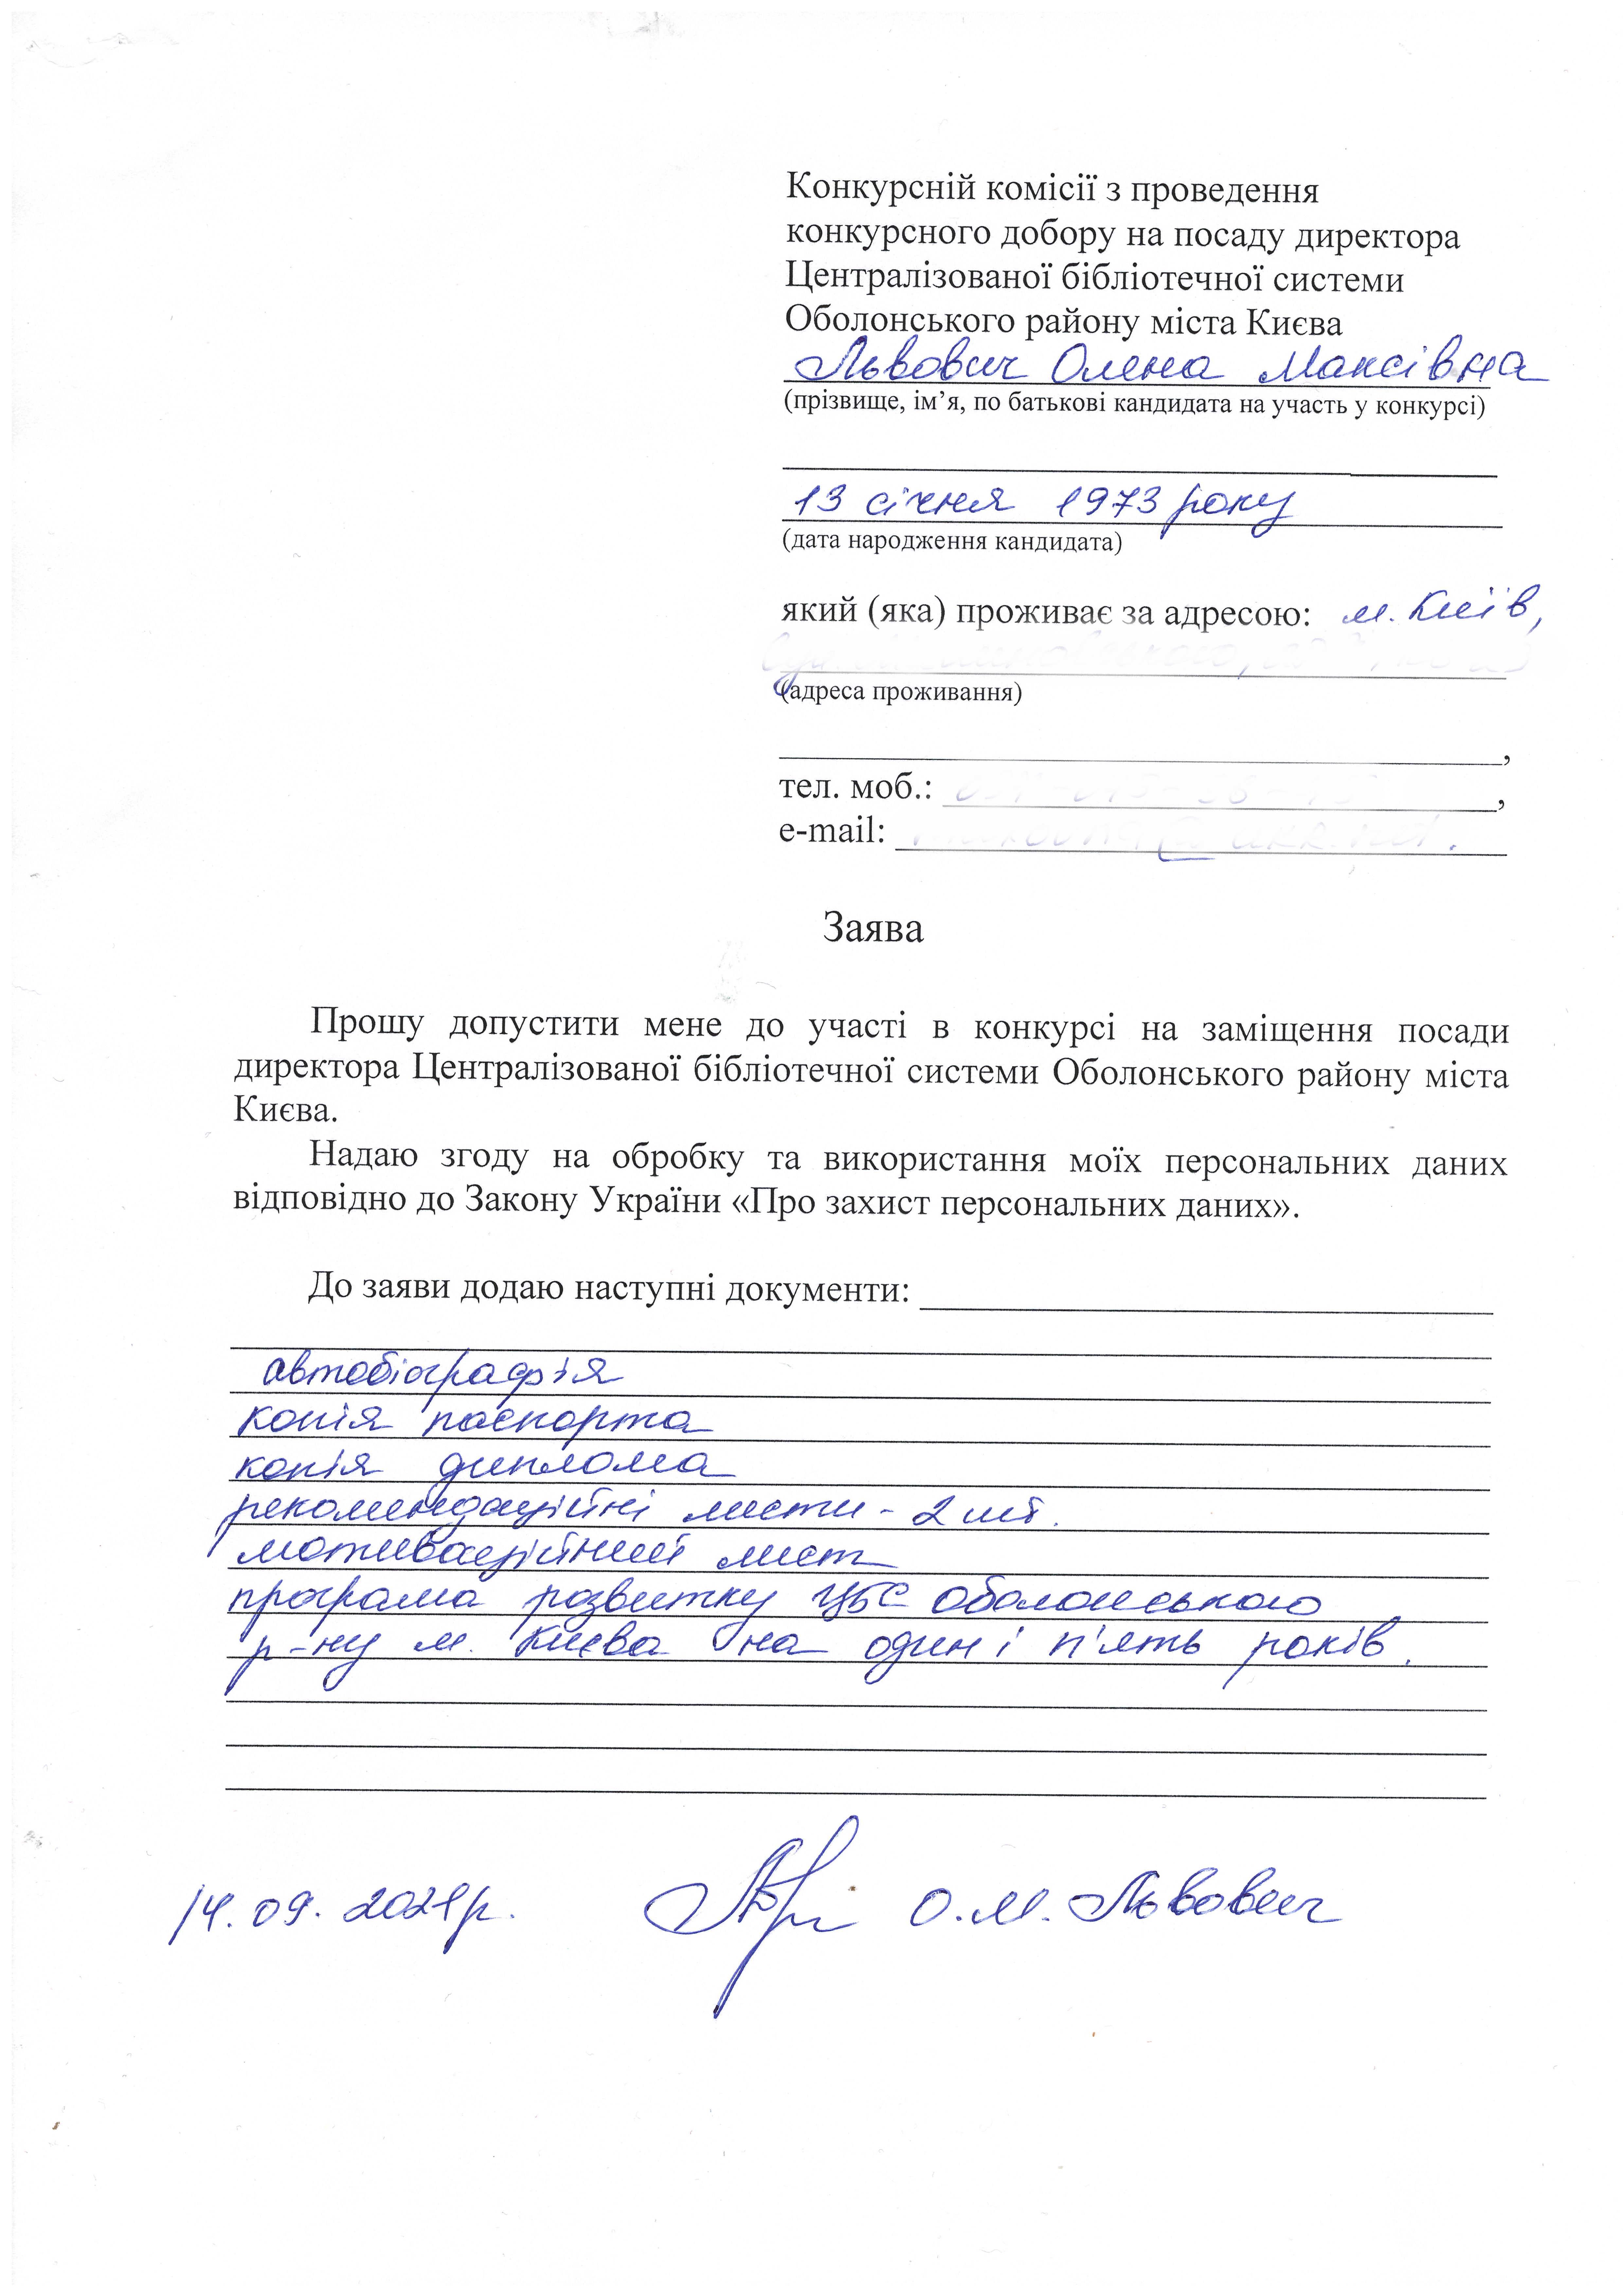 Конкурсній комісії з проведення
конкурсного добору на посаду директора
Централізованої бібліотечної системи
Оболонського району міста Києва
Львович Олена Максівна
(прізвище, ім’я, по батькові кандидата на участь у конкурсі)
13 січня 1973 року
(дата народження кандидата)
який (яка) проживає за адресою: м. Київ,
(адреса проживання)
,
тел. моб.: ,
e-mail:
Заява
Прошу допустити мене до участі в конкурсі на заміщення посади
директора Централізованої бібліотечної системи Оболонського району міста
Києва.
Надаю згоду на обробку та використання моїх персональних даних
відповідно до Закону України «Про захист персональних даних».
До заяви додаю наступні документи:
автобіографія
копія паспорта
копія диплома
рекомендаційні листи - 2 шт.
мотиваційний лист
програма розвитку ЦБС Оболонського
р-ну м. Києва на один і п'ять років.
14.09.2021р. О.М. Львович